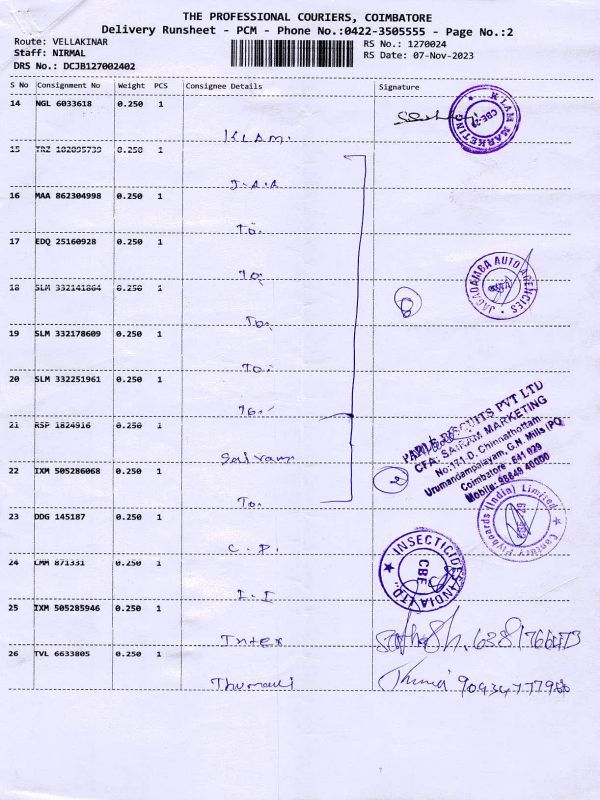 THE PROFESSIONAL COURIERS, COIMBATORE
Delivery Runsheet - PCM - Phone No.:0422-3505555 - Page No.:2
Route: VELLAKINAR
Staff: NIRMAL
DRS No.: DCJB127002402
RS No.: 1270024
RS Date: 07-Nov-2023
S No Consignment No Weight PCS Consignee Details Signature
14 NGL 6033618 0.250 1
KLAM.
K LAM MARKETING
CBE-29
15 TRZ 0.250 1
J.A.A
16 MAA 862304998 0.250 1
To.
17 EDQ 25160928 0.250 1
To.
JAGADAMBA AUTO AGENCIES
18 SLM 332141864 0.250 1
6
To.
19 SLM 332178609 0.250 1
To.
20 SLM 332251961 0.250 1
To.
21 RSP 1824916 0.250 1
Sairam
PARLE BISCUITS PVT LTD
CFA. SAIRAM MARKETING
No:171-D, Chinnathottam,
Urumandampalayam, G.N. Mills (PO)
Coimbatore - 641 029
Mobile: 98849 40000
22 IXM 505286068 0.250 1
2
To.
23 DDG 145187 0.250 1
C.P.
Century Plyboards (India) Limited
24 LMM 871331 0.250 1
I.I
INSECTICIDES INDIA LTD
CBE
25 IXM 505285946 0.250 1
Intex
26 TVL 6633805 0.250 1